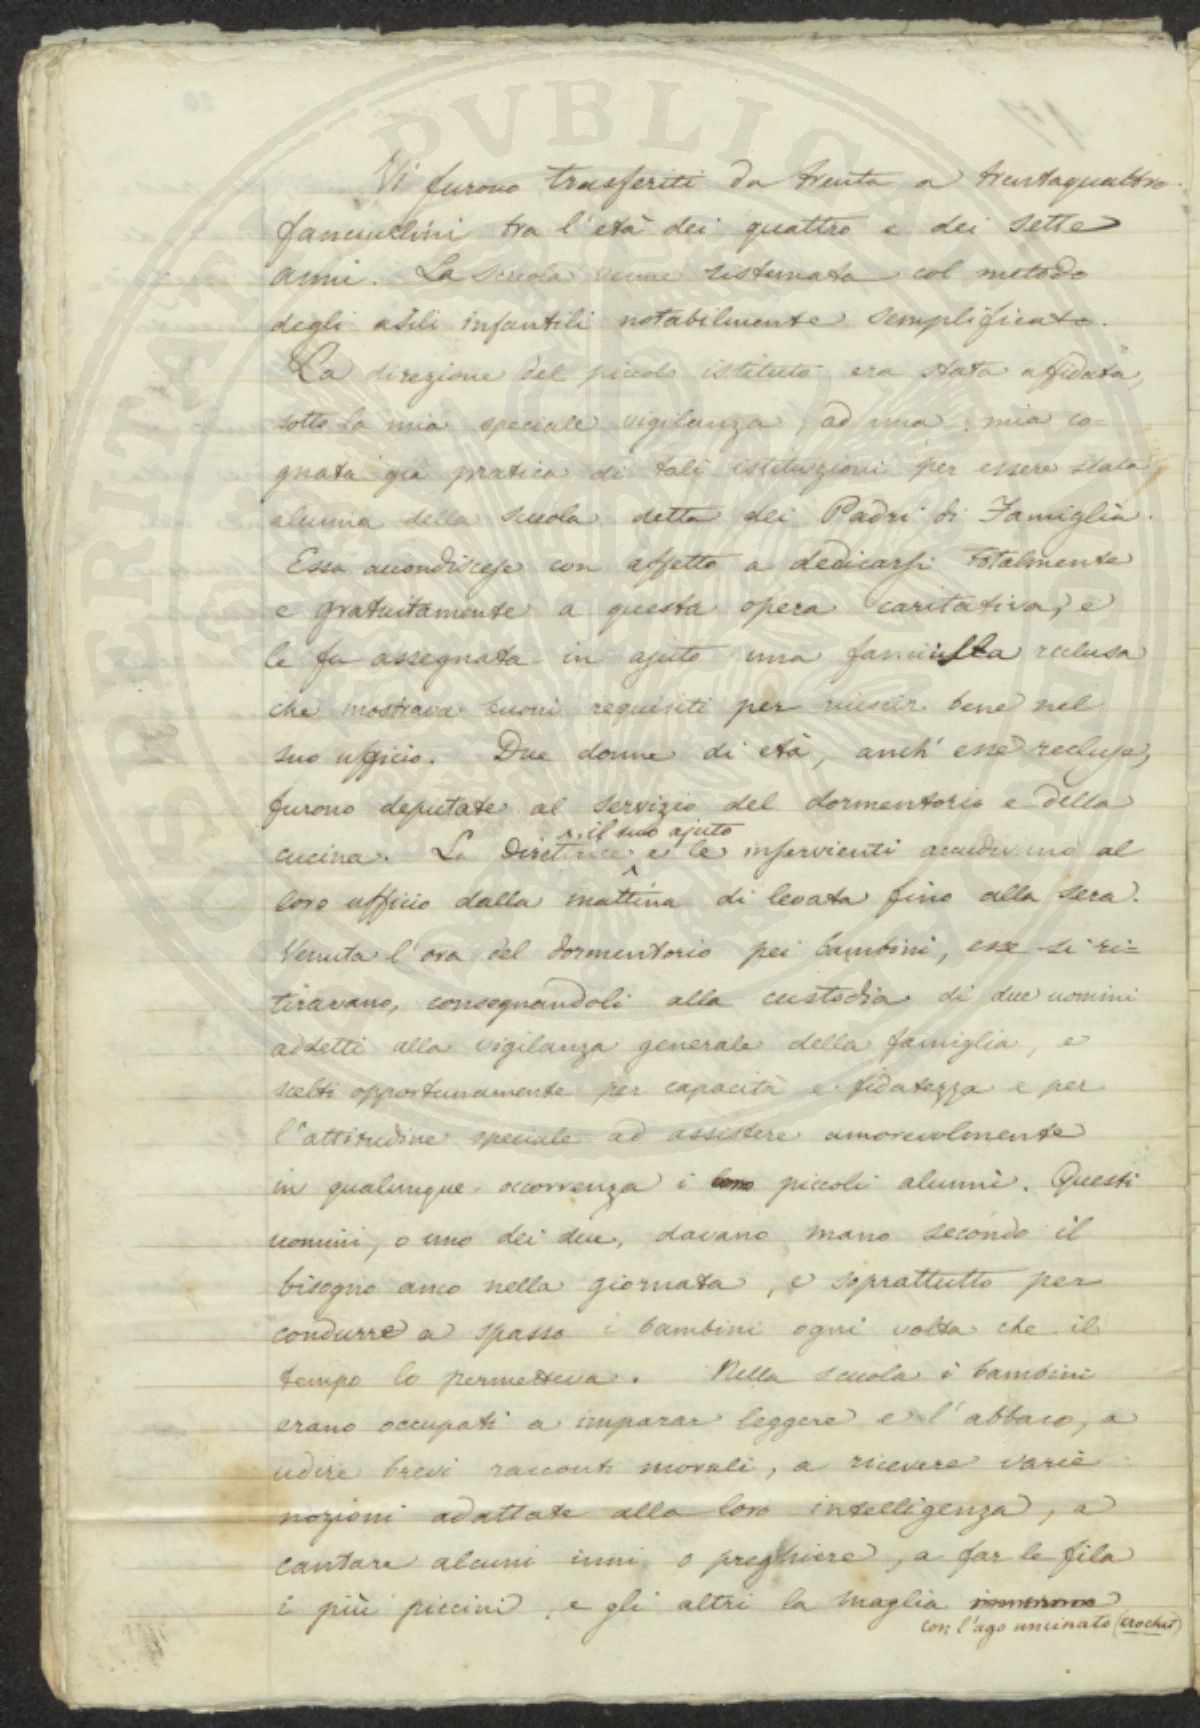 Vi furono trasferiti da trenta a trentaquattro
fanciullini tra l'età dei quattro e dei sette
anni. La scuola venne sistemata col metodo
degli asili infantili notabilmente semplificato.
La direzione del piccolo istituto era stata affidata,
sotto la mia speciale vigilanza, ad una mia co-
gnata già pratica di tali istituzioni per essere stata
alunna della scuola detta dei Padri di Famiglia.
Essa accondiscese con affetto a dedicarsi totalmente
e gratuitamente a questa opera caritativa, e
le fu assegnata in ajuto una fanciulla reclusa
che mostrava buoni requisiti per riuscir bene nel
suo ufficio. Due donne di età, anch' esse recluse,
furono deputate al servizio del dormentorio e della
il suo ajuto
cucina. La Direttrice e le inservienti accudivano al
loro ufficio dalla mattina di levata fino alla sera.
Venuta l'ora del dormentorio pei bambini, esse si ri=
tiravano, consegnandoli alla custodia di due uomini
addetti alla vigilanza generale della famiglia, e
scelti opportunamente per capacità e fidatezza e per
l'attitudine speciale ad assistere amorevolmente
in qualunque occorrenza i loro piccoli alunni. Questi
uomini, o uno dei due, davano mano secondo il
bisogno anco nella giornata, e soprattutto per
condurre a spasso i bambini ogni volta che il
tempo lo permetteva. Nella scuola i bambini
erano occupati a imparar leggere e l'abbaco, a
udire brevi racconti morali, a ricevere varie
nozioni adattate alla loro intelligenza, a
cantare alcuni inni o preghiere, a far le fila
i più piccini, e gli altri la maglia
con l'ago uncinato (crochet)